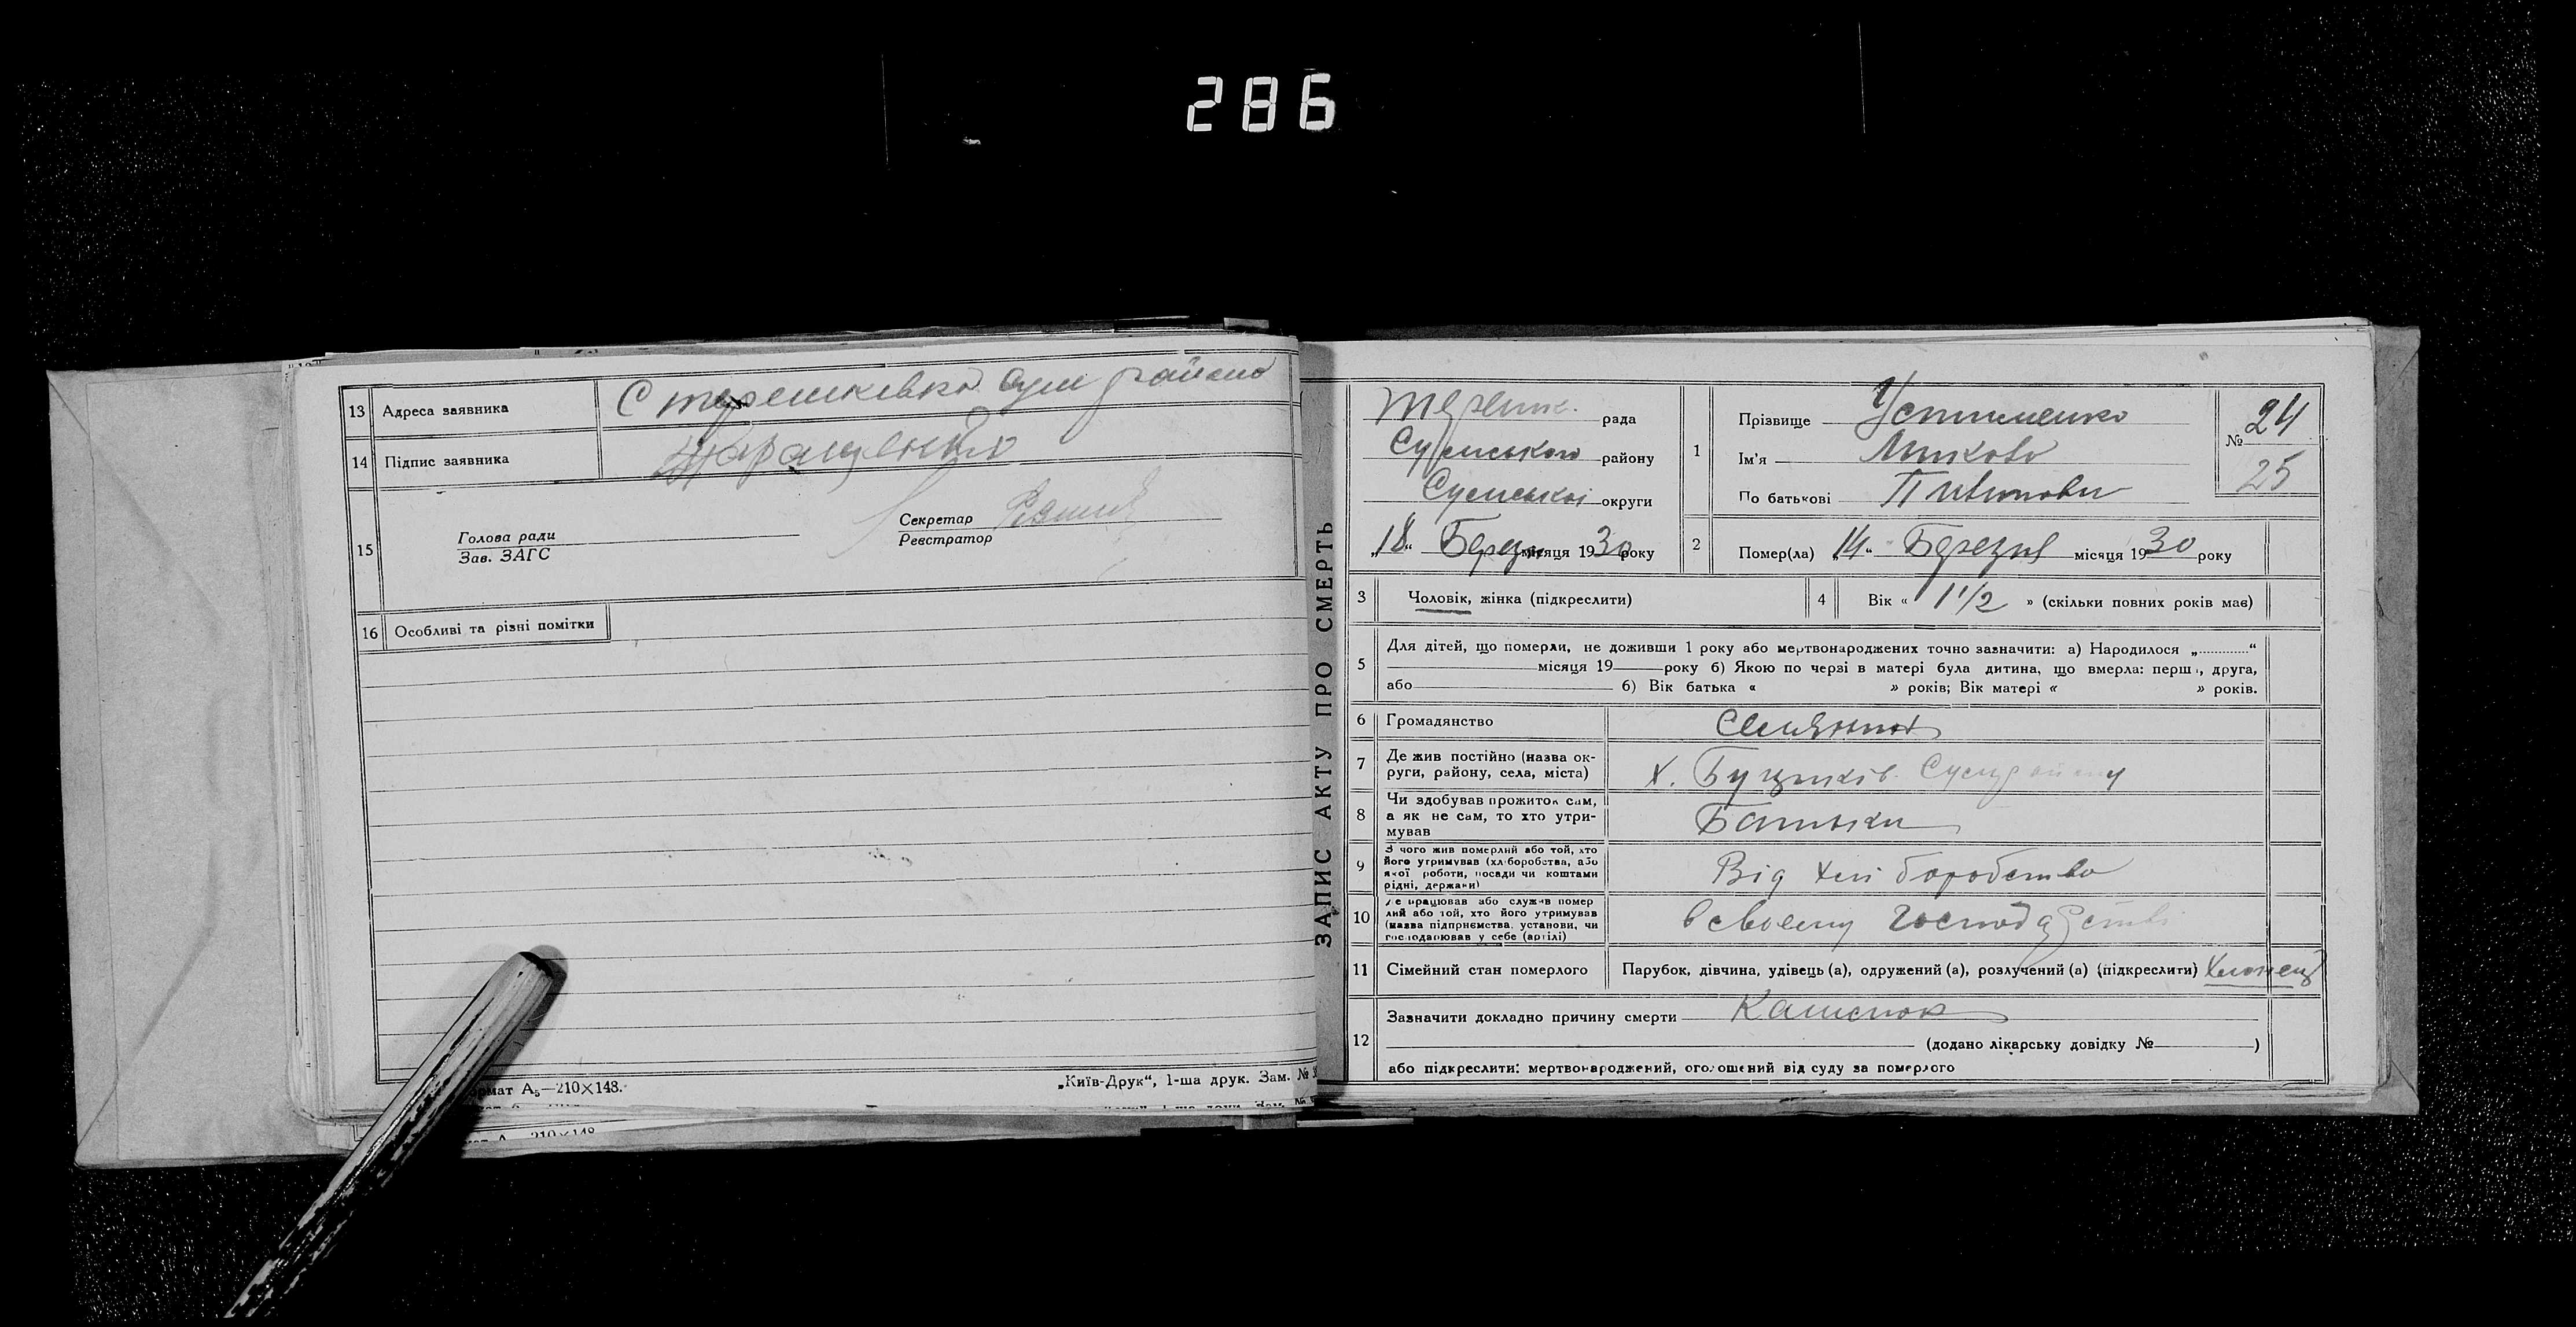 286
13 Адреса заявника С терешківка Сум району
14 Підпис заявника
15 Голова ради
Зав. ЗАГС
Секретар
Реєстратор
16 Особливі та різні помітки
Формат А5—210×148.
„Київ-Друк“, 1-ша друк. Зам. №
ЗАПИС АКТУ ПРО СМЕРТЬ
Терешк. рада
Сумського району
Сумської округи
„18“ Березня місяця 1930 року
1 Прізвище Устименко
Ім'я Микола
По батькові Пивипович
№ 24
25
2 Помер(ла) „14“ Березня місяця 1930 року
3 Чоловік, жінка (підкреслити)
4 Вік « 1 1/2 » (скільки повних років мав)
5 Для дітей, що померли, не доживши 1 року або мертвонароджених точно зазначити: а) Народилося „............“
місяця 19 року б) Якою по черзі в матері була дитина, що вмерла: перша, друга,
або б) Вік батька « » років; Вік матері « » років.
6 Громадянство Селянин
7 Де жив постійно (назва округи, району, села, міста) х. Сумрайону
8 Чи здобував прожиток сам,
а як не сам, то хто утри-
мував Батьки
9 З чого жив померлий або той, хто
його утримував (хліборобства, або
якої роботи, посади чи коштами
рідні, держави) Від хліборобства
10 Де працював або служив помер
лий або той, хто його утримував
(назва підприємства, установи, чи
господарював у себе (артілі) в своєму господарстві
11 Сімейний стан померлого Парубок, дівчина, удівець (а), одружений (а), розлучений (а) (підкреслити) Хлопець
12 Зазначити докладно причину смерти Кашлюк
(додано лікарську довідку № )
або підкреслити: мертвонароджений, оголошений від суду за померлого